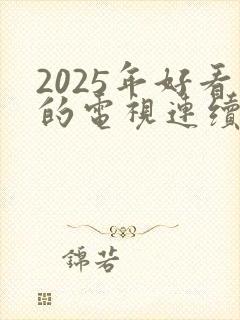 2025年好看
的電視連續
錦若